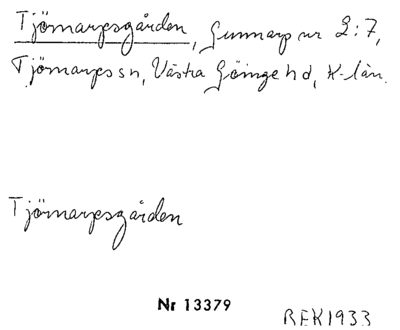 Tjörnarpsgården, Gunnarp nr 2:7,
Tjörnarps sn, Västra Göinge hd, K-län.
Tjörnarpsgården
Nr 13379
REK1933